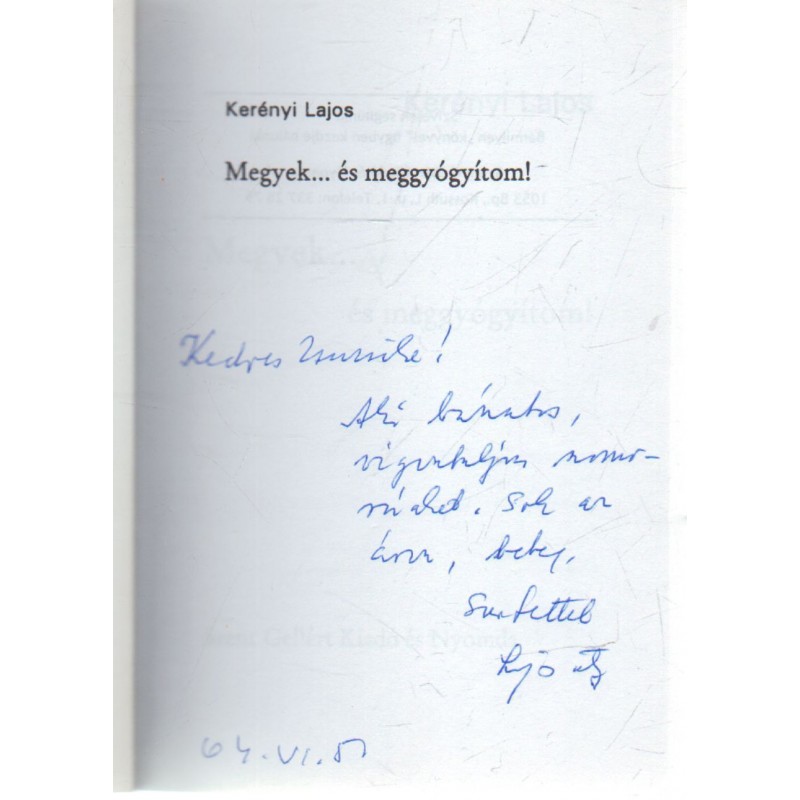 Kerényi Lajos
Megyek... és meggyógyítom!
Kedves Zsuzsika!
Aki bánatos,
vigasztaljon szomo-
rúakat. Sok az
árva, beteg.
Szeretettel
Lajos
04. VI.